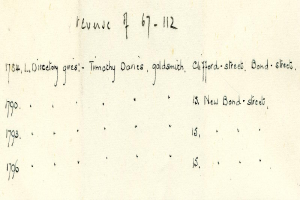 reverse of 67-112
1784. L. Directory gives:- Timothy Davies, goldsmith, Clifford-street, Bond-street.
1790. " " " " " " 13. New Bond-street.
1793. " " " " " " 15. " " "
1796 " " " " " " 15. " " "